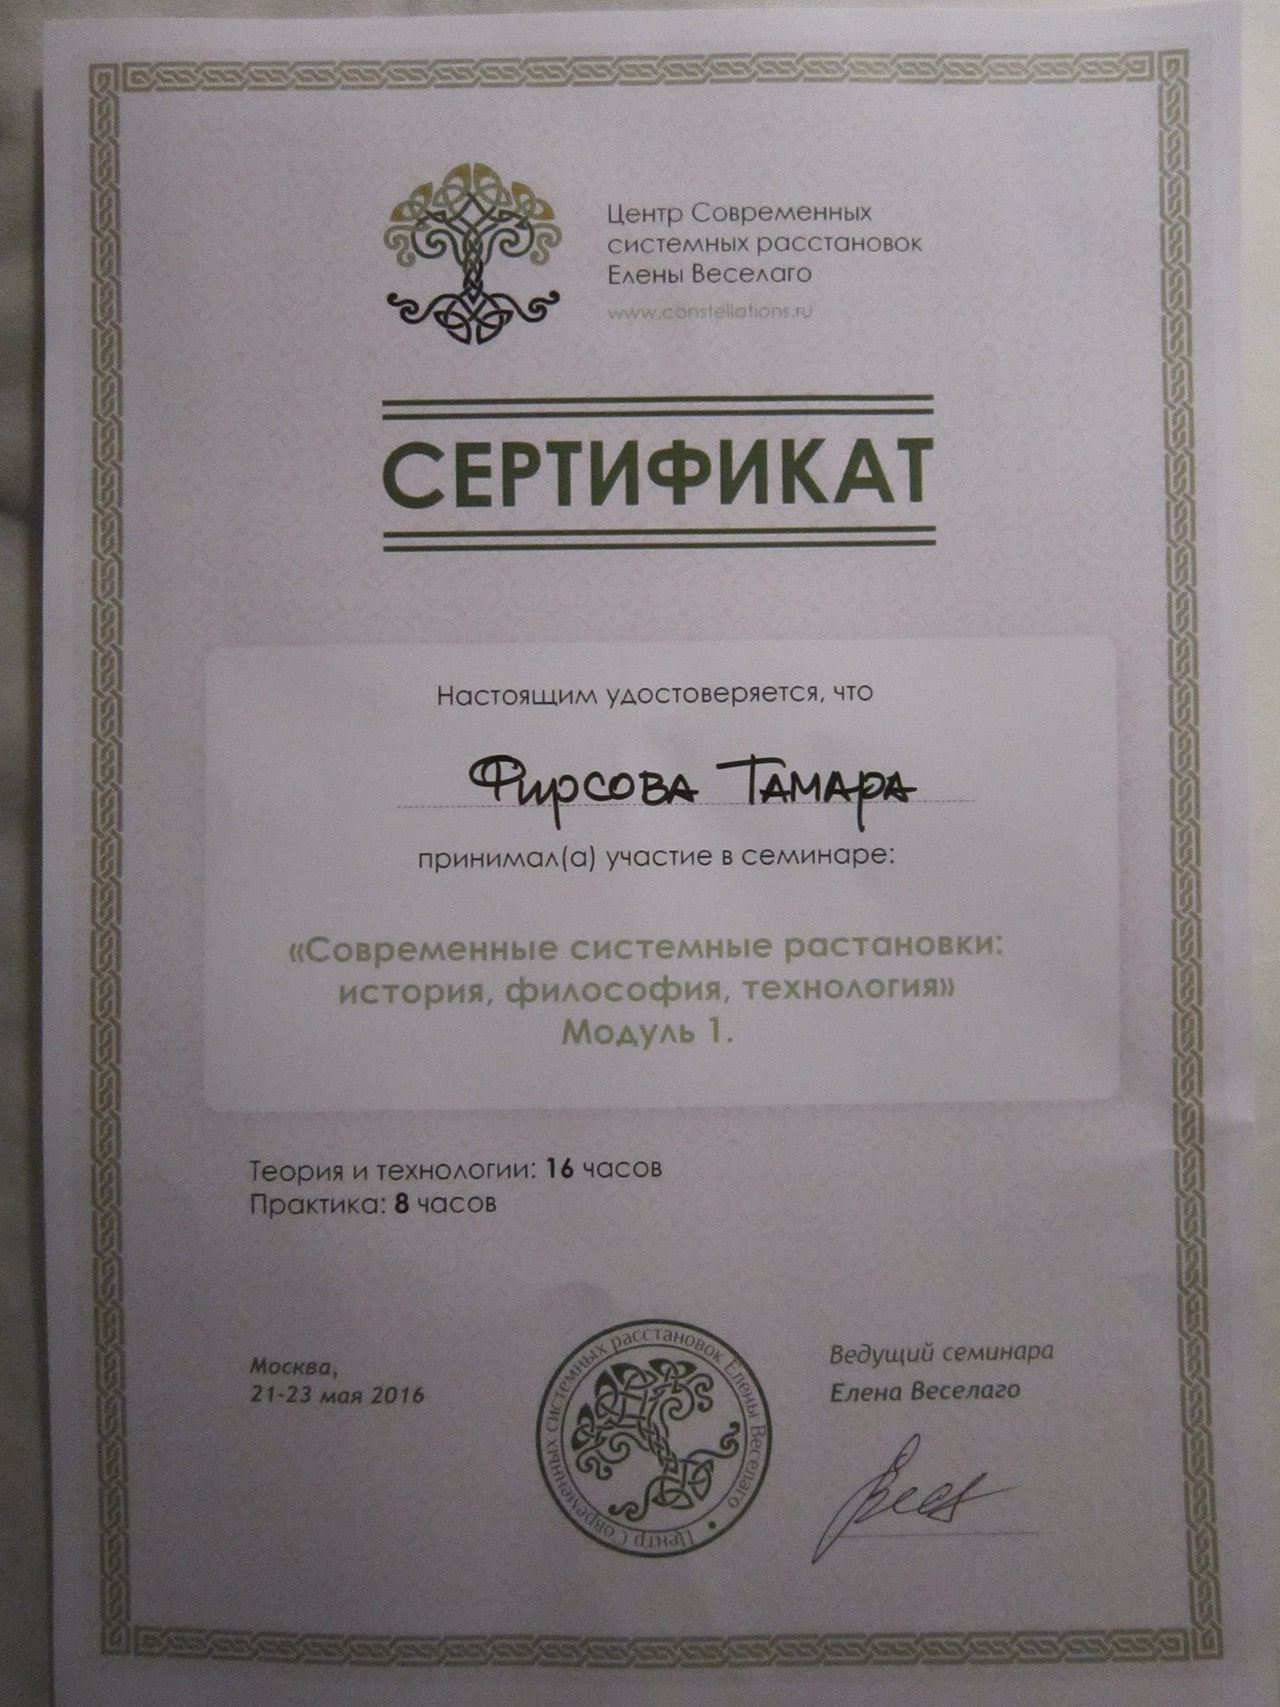 Центр Современных
системных расстановок
Елены Веселаго
www.constellations.ru
СЕРТИФИКАТ
Настоящим удостоверяется, что
Фирсова Тамара
принимал(а) участие в семинаре:
«Современные системные растановки:
история, философия, технология»
Модуль 1.
Теория и технологии: 16 часов
Практика: 8 часов
Москва,
21-23 мая 2016
Центр Современных системных расстановок Елены Веселаго •
Ведущий семинара
Елена Веселаго